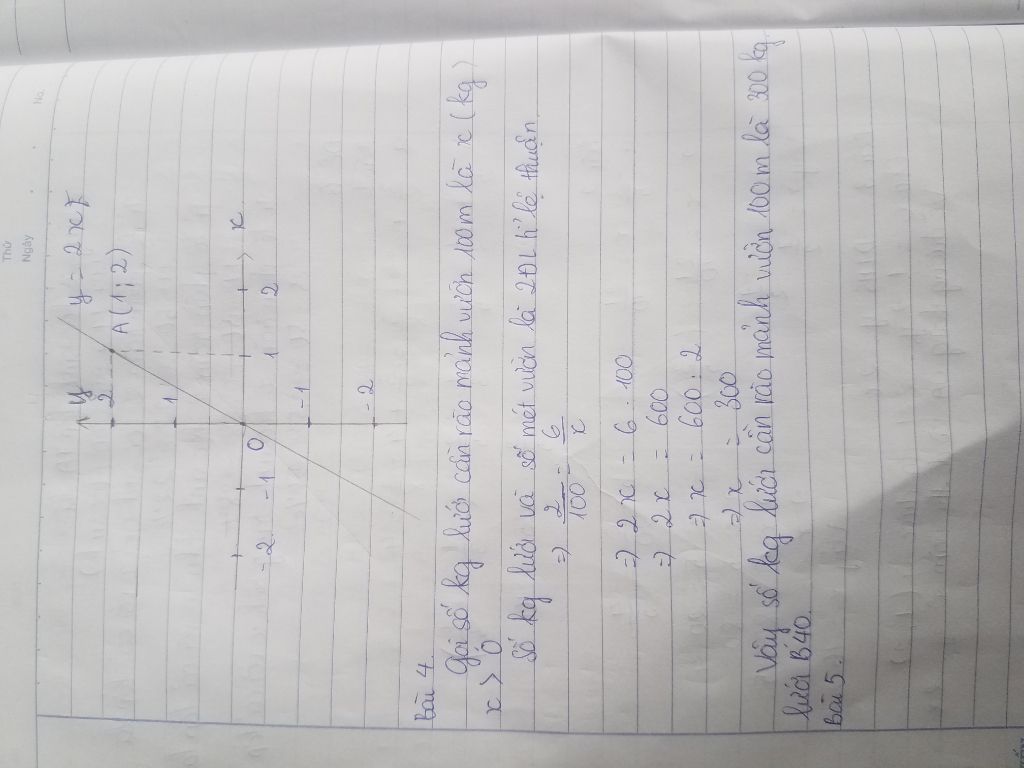 No.
Thứ
Ngày
y
y = 2x
2
A(1; 2)
1
-2 -1 O 1 2 x
-1
-2
Bài 4.
Gọi số kg lưới cần rào mảnh vườn 100m là x (kg)
x > 0
Số kg lưới và số mét vườn là 2ĐL tỉ lệ thuận.
=> 2/100 = 6/x
=> 2x = 6 . 100
=> 2x = 600
=> x = 600 : 2
=> x = 300
Vậy số kg lưới cần rào mảnh vườn 100m là 300 kg
lưới B40.
Bài 5.